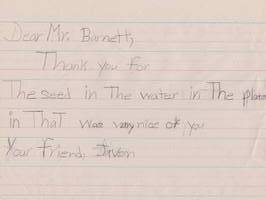 Dear Mr. Barnett,
Thank you for
The seed in The water in The plant
in ThaT was very nice of you
Your friend,